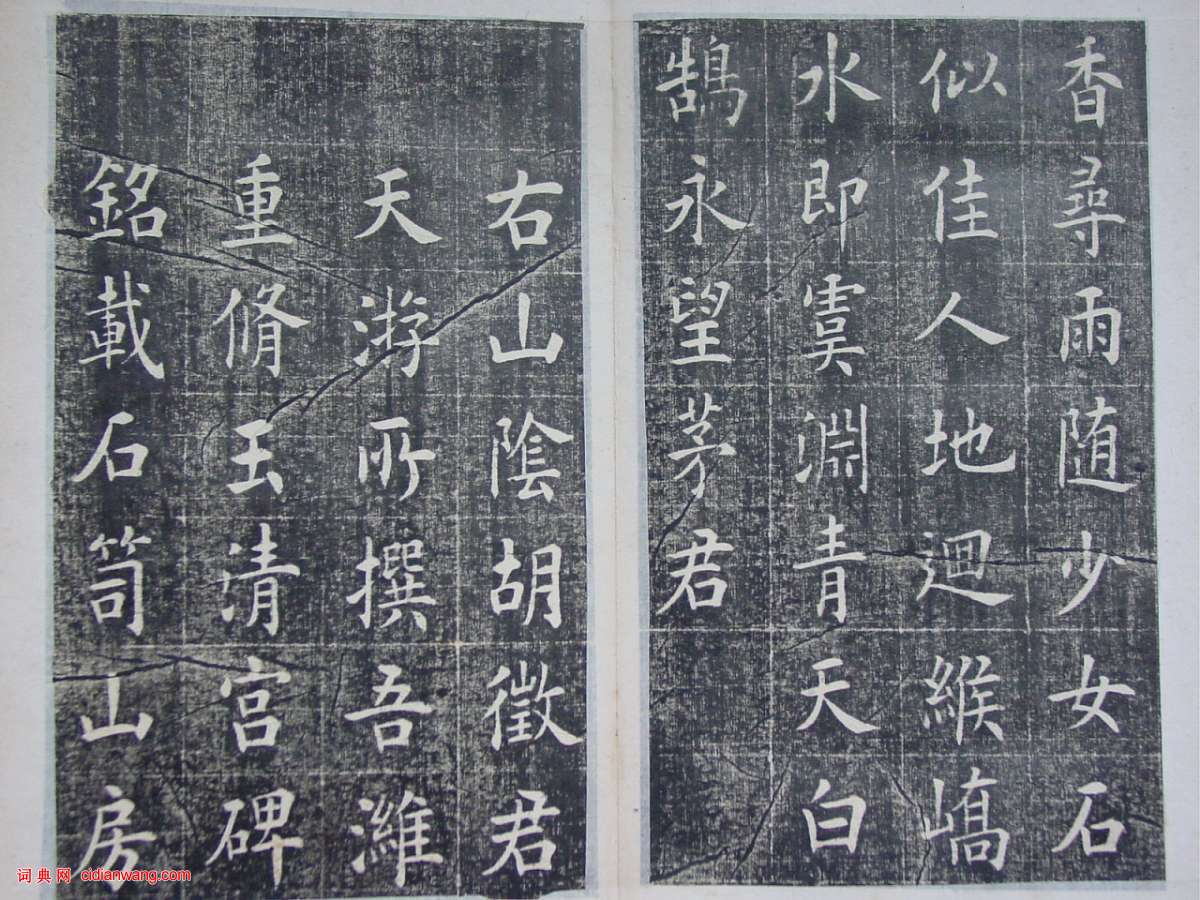 香尋雨随少女石
似佳人地迴緱嶠
水即虞淵青天白
鵠永望茅君
右山陰胡徵君
天游所撰吾濰
重脩玉清宫碑
銘載石笥山房
词典网 cidianwang.com